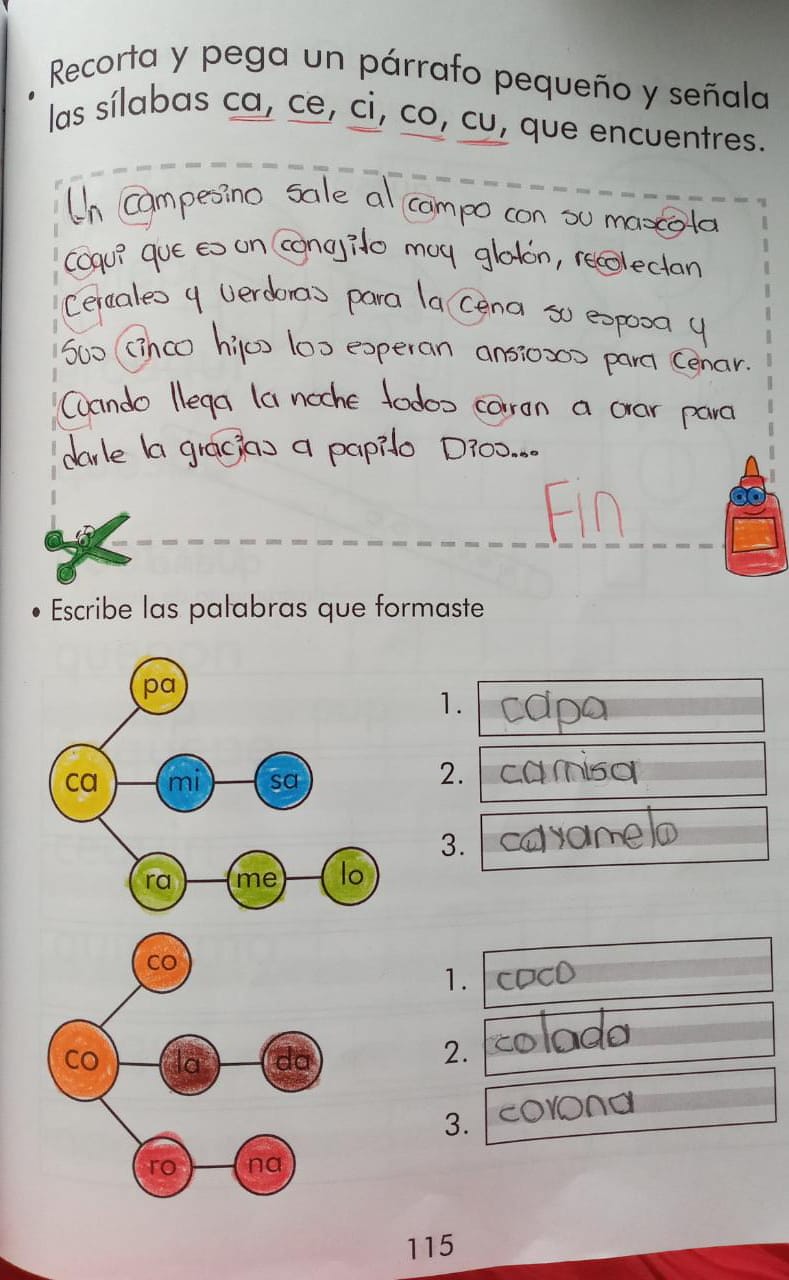 • Recorta y pega un párrafo pequeño y señala
las sílabas ca, ce, ci, co, cu, que encuentres.
Un campesino sale al campo con su mascota
coqui que es un conejito muy glotón, recolectan
Cereales y verduras para la cena su esposa y
Sus cinco hijos los esperan ansiosos para cenar.
Cuando llega la noche todos corran a orar para
darle la gracias a papito Dios...
Fin
• Escribe las palabras que formaste
pa
ca mi sa
ra me lo
1. capa
2. camisa
3. caramelo
co
co la da
ro na
1. coco
2. colada
3. corona
115